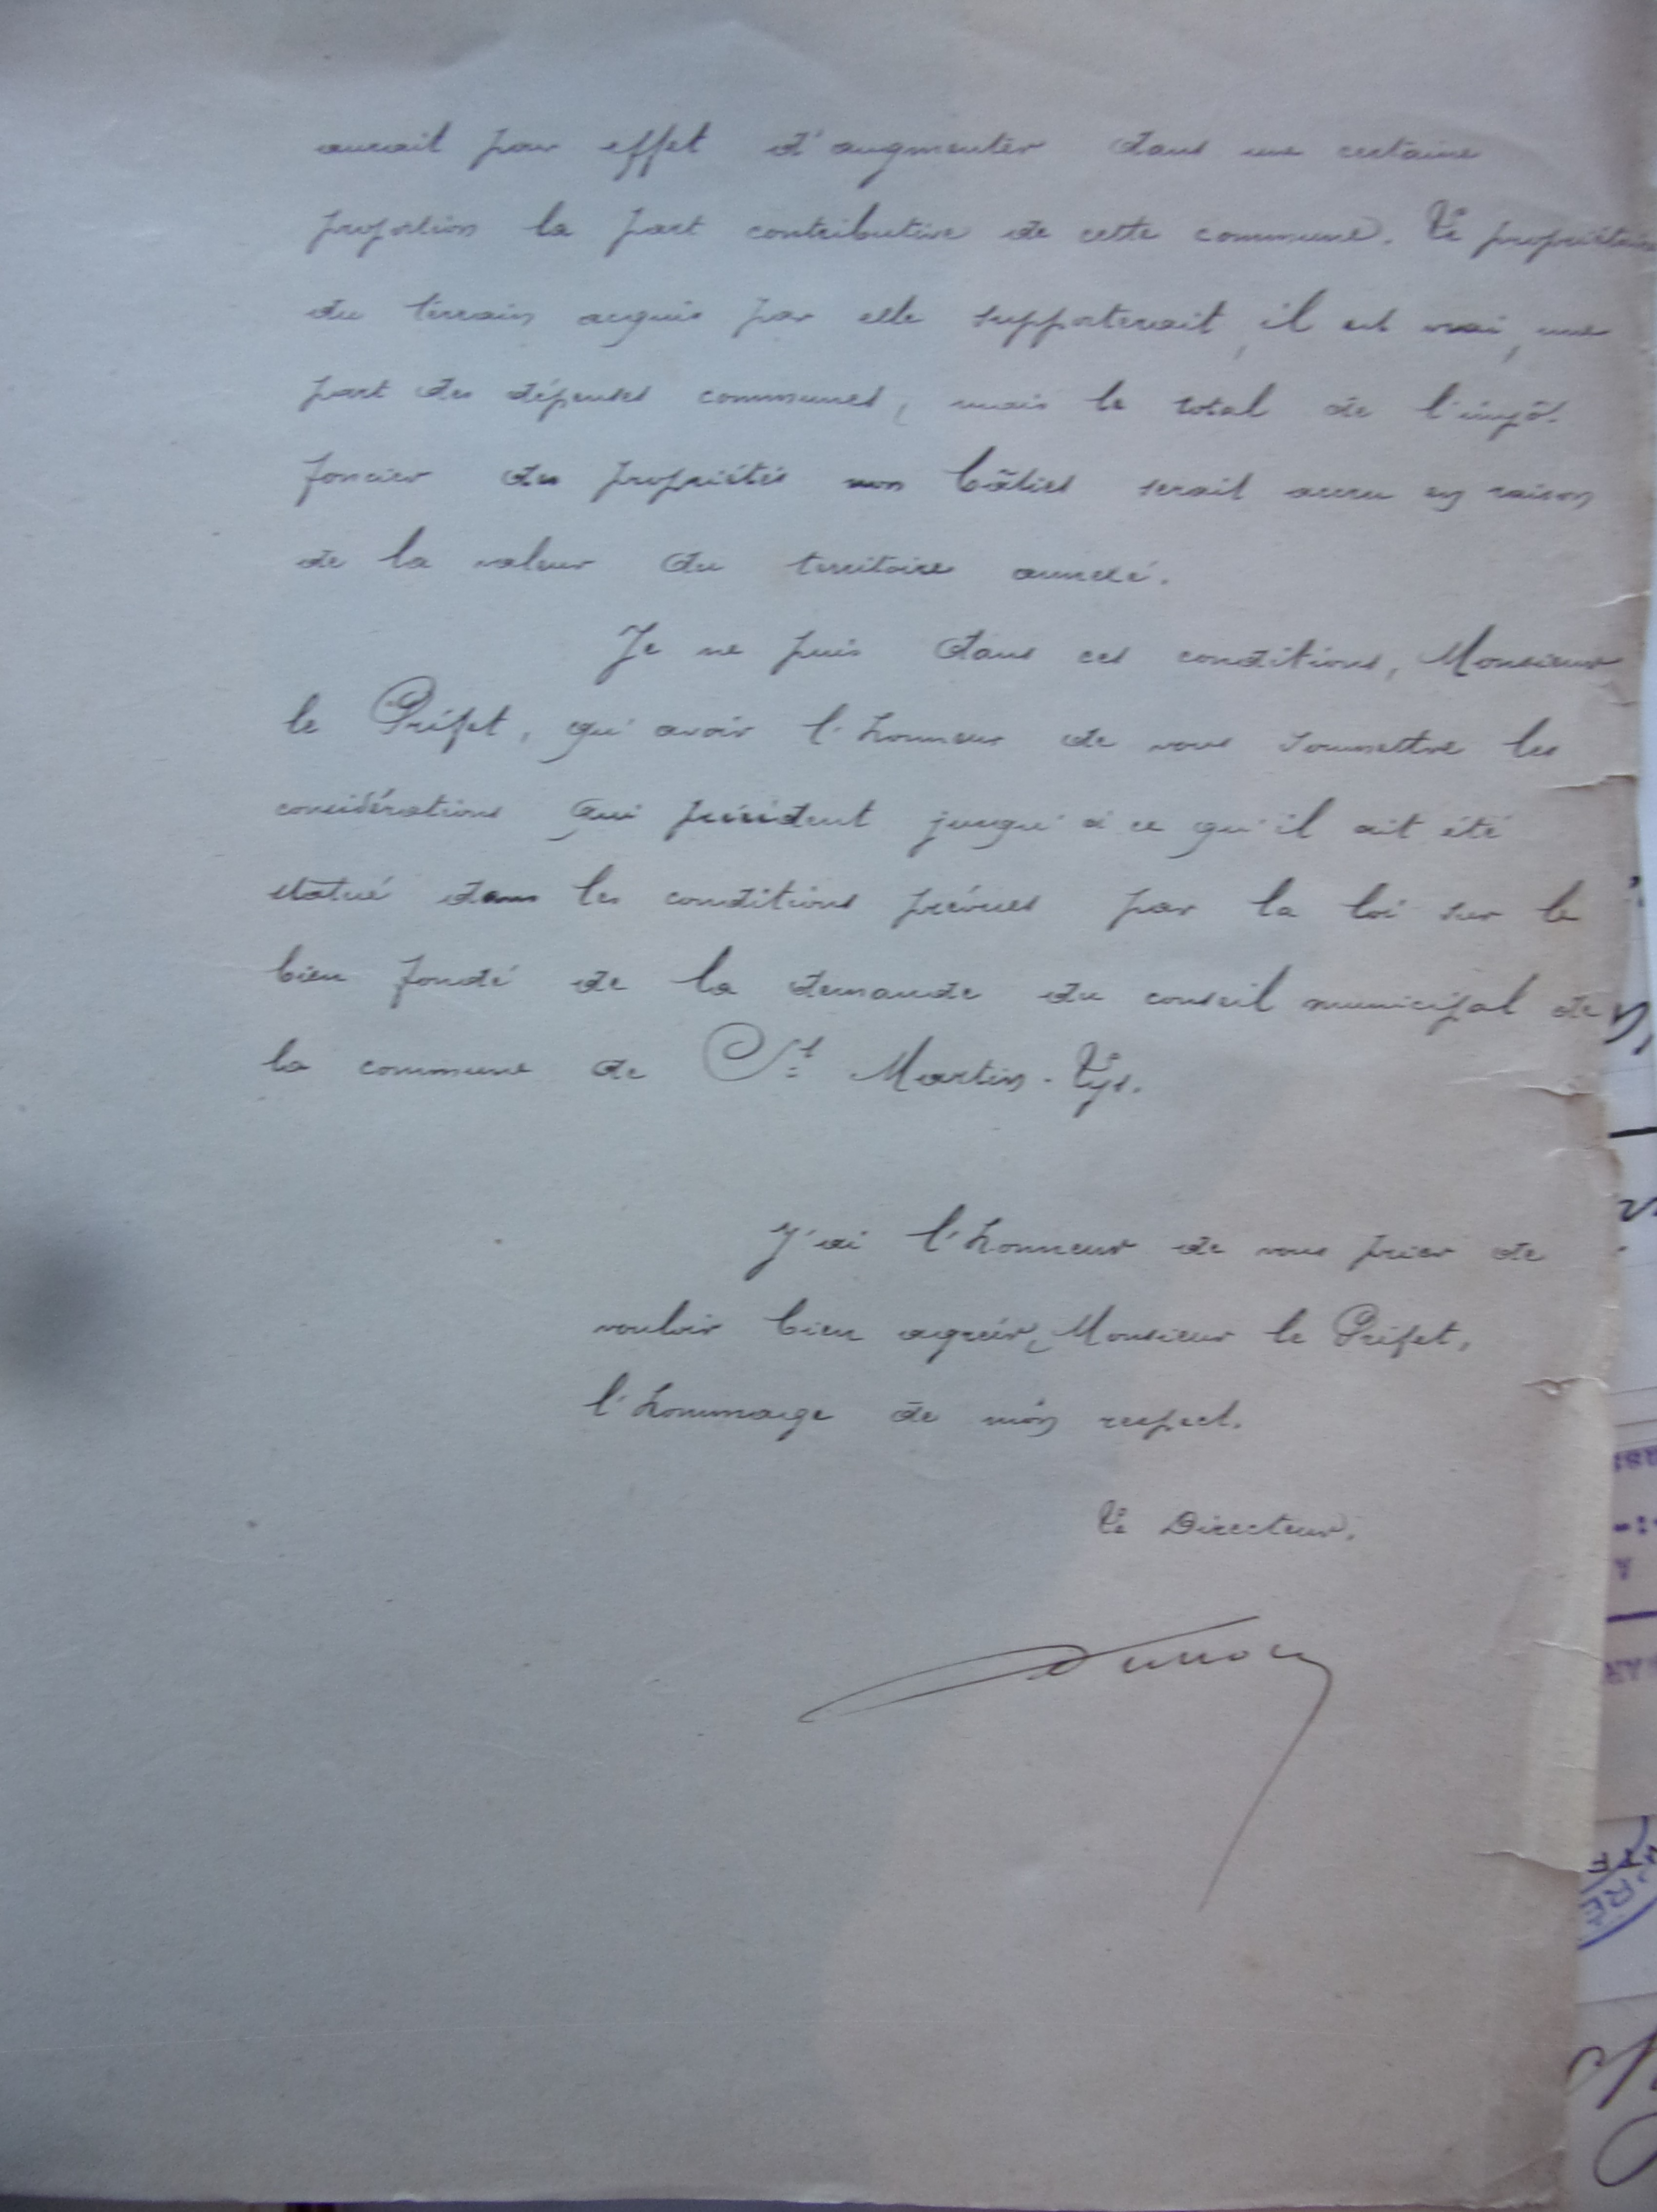 aurait pour effet d'augmenter dans une certaine
proportion la part contributive de cette commune. Le propriétaire
du terrain acquis par elle supporterait, il est vrai, une
part des dépenses communes, mais le total de l'impôt
foncier des propriétés non bâties serait accru en raison
de la valeur du territoire annexé.
Je ne puis dans ces conditions, Monsieur
le Préfet, qu'avoir l'honneur de vous soumettre les
considérations qui précèdent jusqu'à ce qu'il ait été
statué dans les conditions prévues par la loi sur le
bien fondé de la demande du conseil municipal de
la commune de St Martin-Lys.
J'ai l'honneur de vous prier de
vouloir bien agréer, Monsieur le Préfet,
l'hommage de mon respect.
Le Directeur,